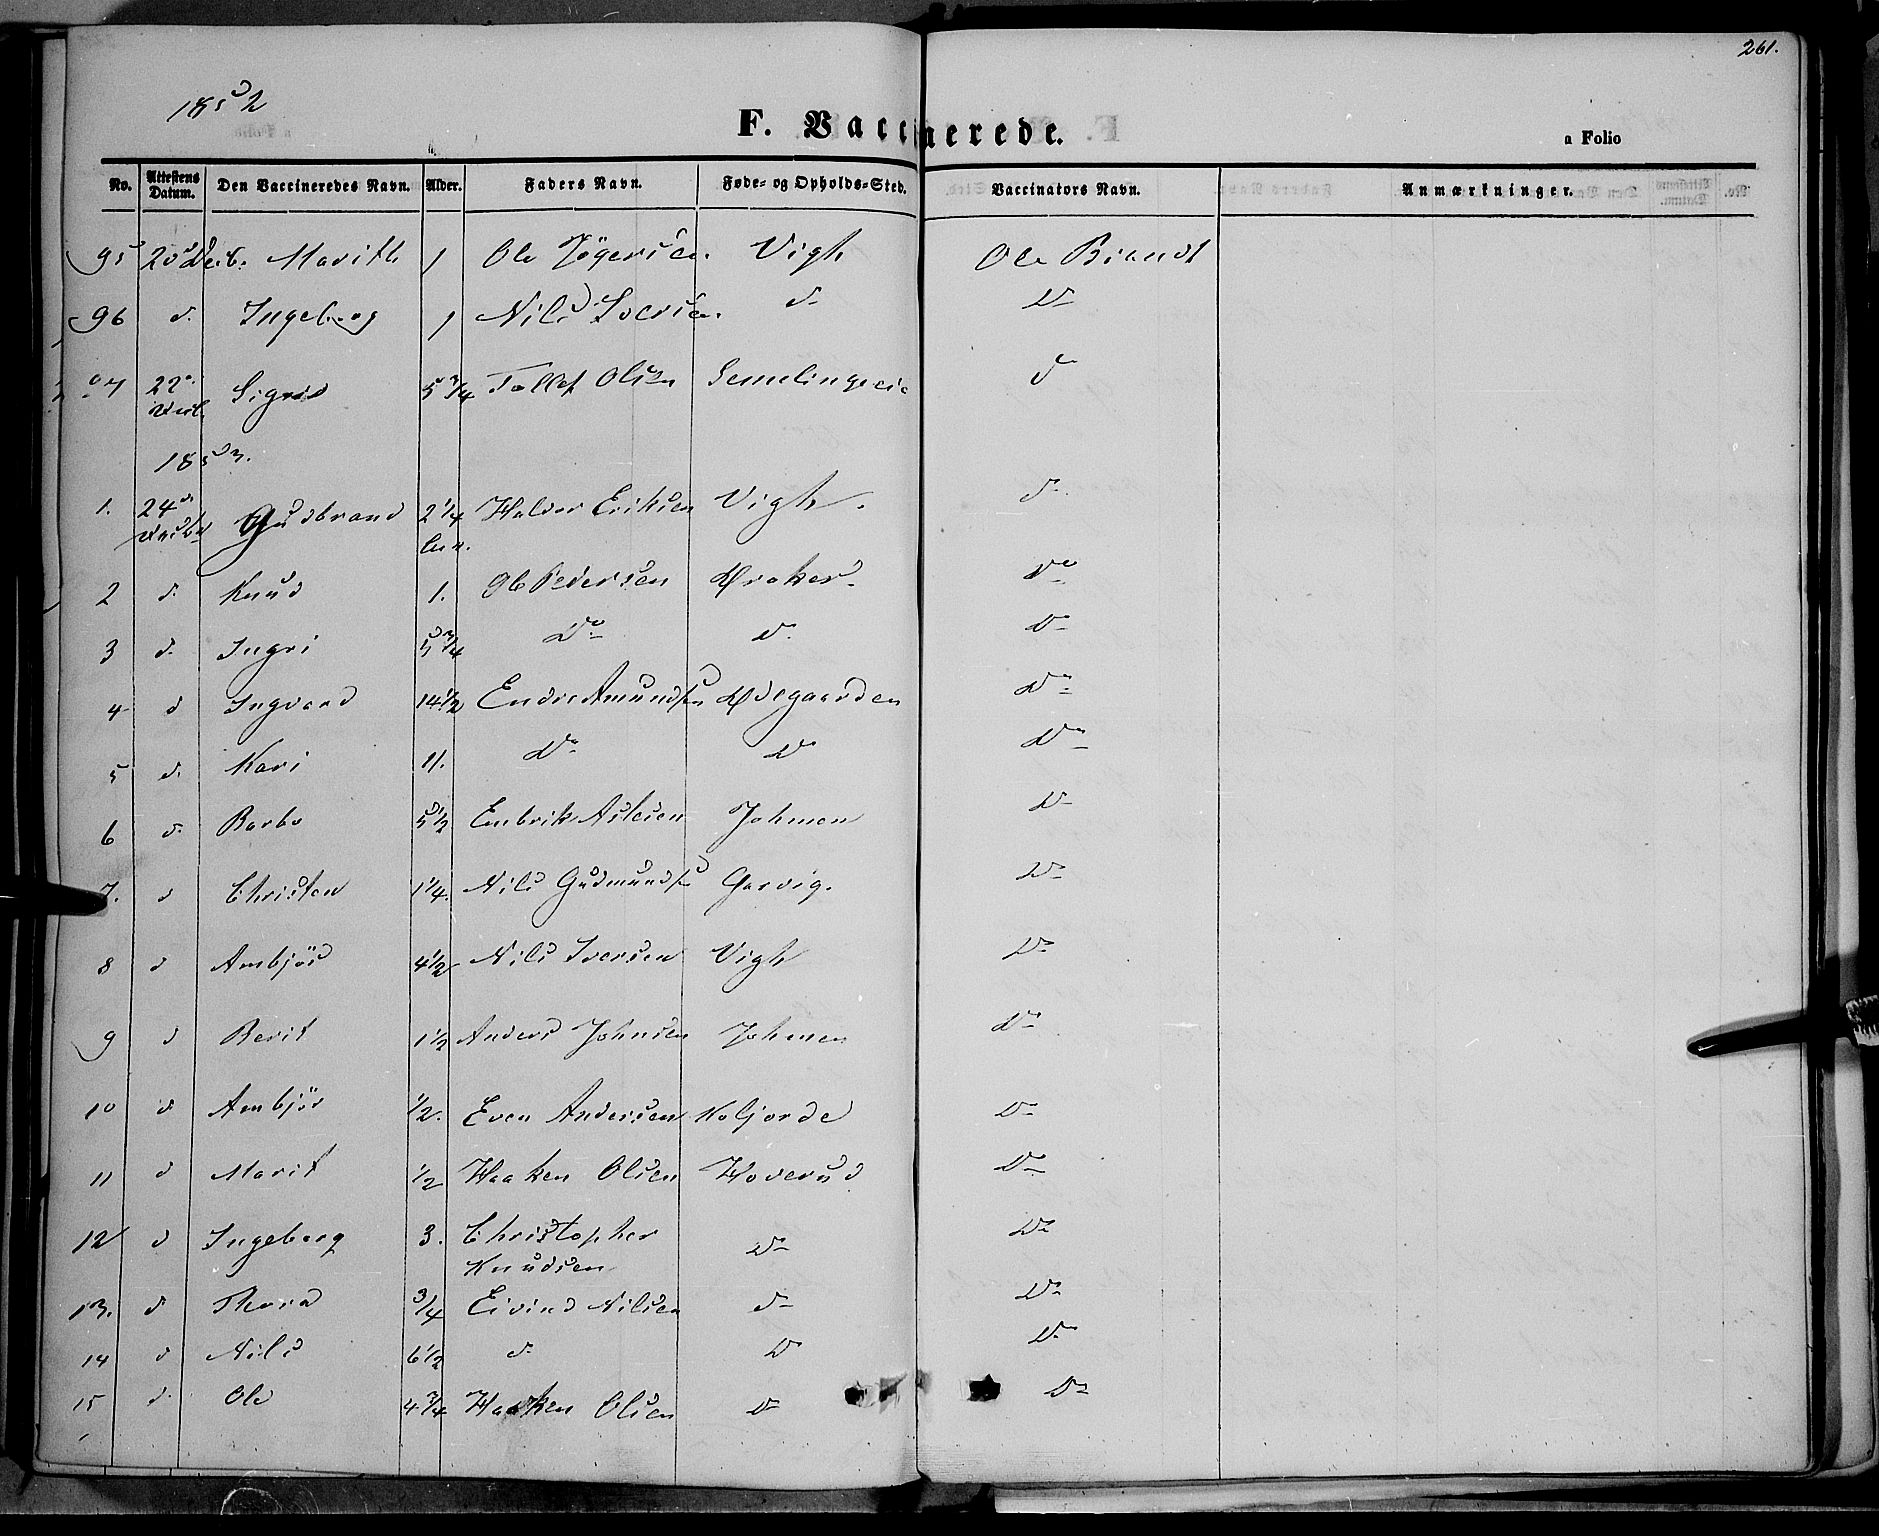 261.
1852
F. Vaccinerede.
a Folio
No. Attestens Datum. Den Vaccineredes Navn. Alder. Faders Navn. Føde- og Opholds-Sted. Vaccinators Navn. Anmærkninger.
95 20 Decb. Marith 1 Ole Vigh Ole Brandt
96 d. Ingeborg 1 Nils Iversen d- D-
97 22 Decb. Sigrid 5 3/4 Tollef Olsen d-
1853.
1. 24 Gudbrand 2 1/4 Halvor Eriksen Vigh. d-
2 d. Knud 1. Ole Pedersen Kraker D-
3 d. Ingri 5 3/4 D- D- D-
4 d Ingvard 14 1/2 Endre Amundsen Ødegaarden D-
5 d. Kari 11. D- D D-
6 d. Barbo 5 1/2 Embrik Aslesen D-
7. d Christen 1 1/4. Nils Gudmundsen Garvig. D-
8 d Ambjör 4 1/2 Nils Iversen Vigh D-
9 d Berit 1 1/2 Anders Johnsen D-
10 d Ambjör 1/2. Even Andersen D-
11 d Marit 1/2 Haaken Olsen Hoverud D-
12 d Ingeborg 3. Christopher Knudsen D- D-
13. d Thora 3/4 Eivind Nilsen d- D-
14 d Nils 6 1/2 d. D D-
15 d. Ole 4 3/4 Haaken Olsen D- D-